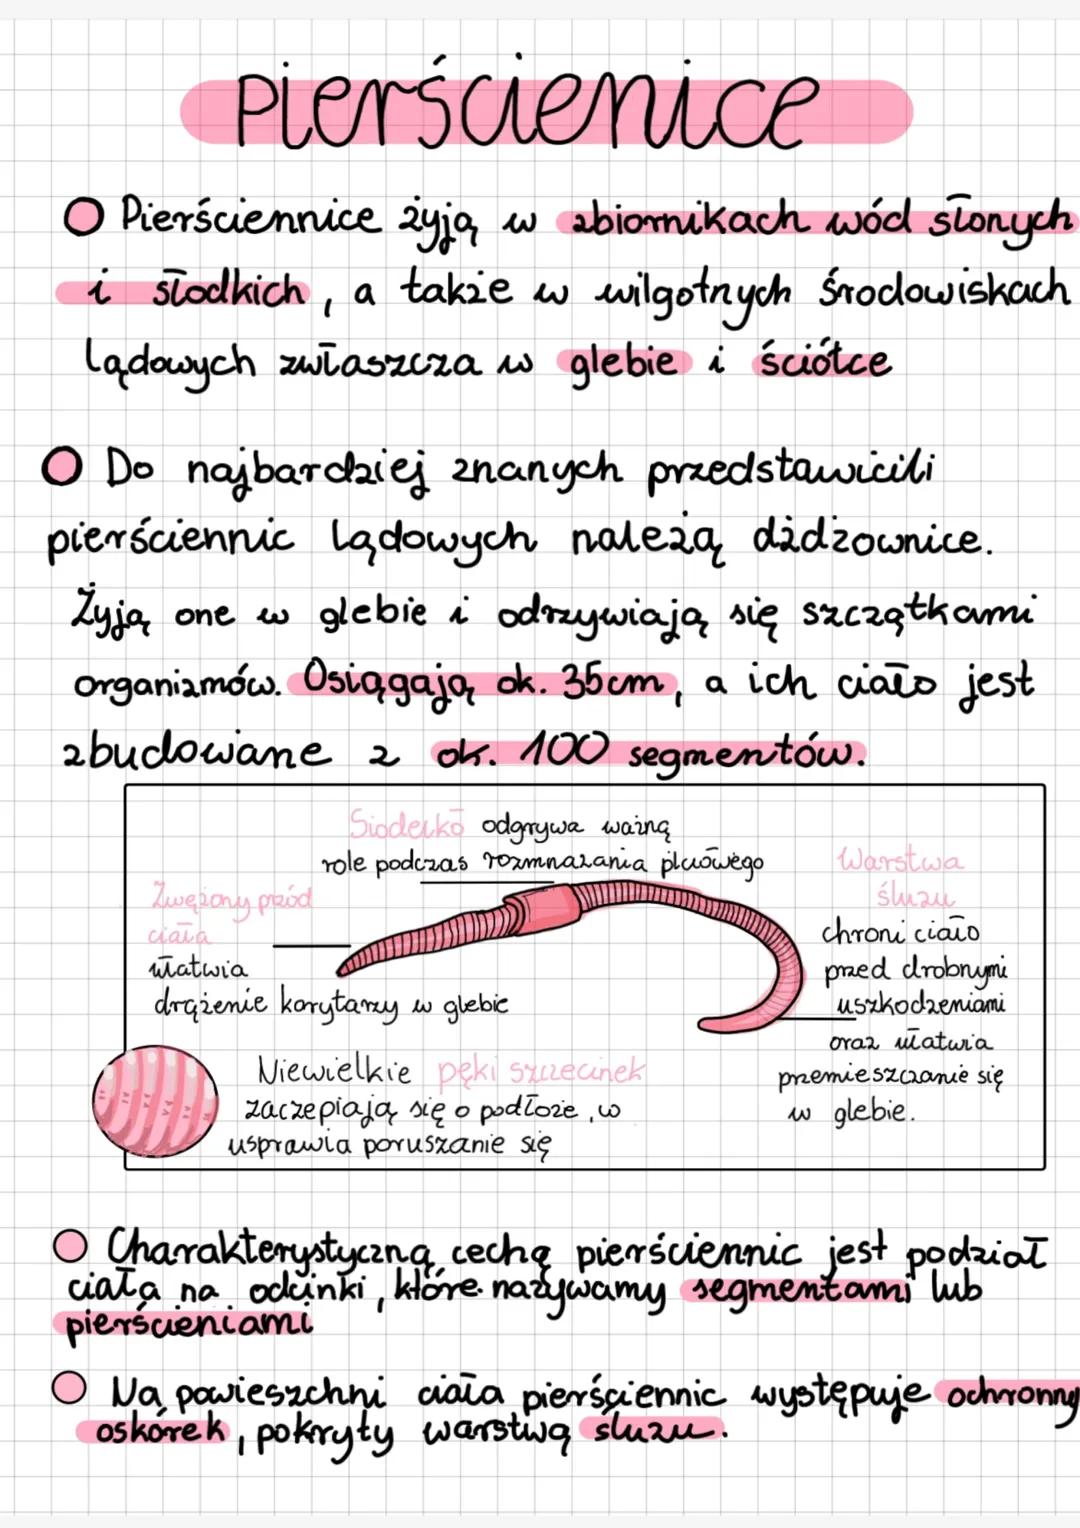 pierścienice
Pierściennice żyją w zbiornikach wód słonych
i słodkich, a także w wilgotnych środowiskach
lądowych zwłaszcza w glebie i ściółce
Do najbardziej znanych przedstawicili
pierściennic lądowych należą dżdżownice.
Żyją one w glebie i odrzywiają się szczątkami
organizmów. Osiągają ok. 35cm, a ich ciało jest
zbudowane z ok. 100 segmentów.
Siodełko odgrywa ważną
role podczas rozmnażania płciowego
Zwężony przód
ciała
ułatwia
drążenie korytarzy w glebie
Warstwa
śluzu
chroni ciało
przed drobnymi
uszkodzeniami
oraz ułatwia
przemieszczanie się
w glebie.
Niewielkie pęki szczecinek
zaczepiają się o podłoże, w
usprawia poruszanie się
Charakterystyczną cechą pierściennic jest podział
ciała na odcinki, które nazywamy segmentami lub
pierścieniami
Na powieszchni ciała pierściennic występuje ochronny
oskórek, pokryty warstwą śluzu.